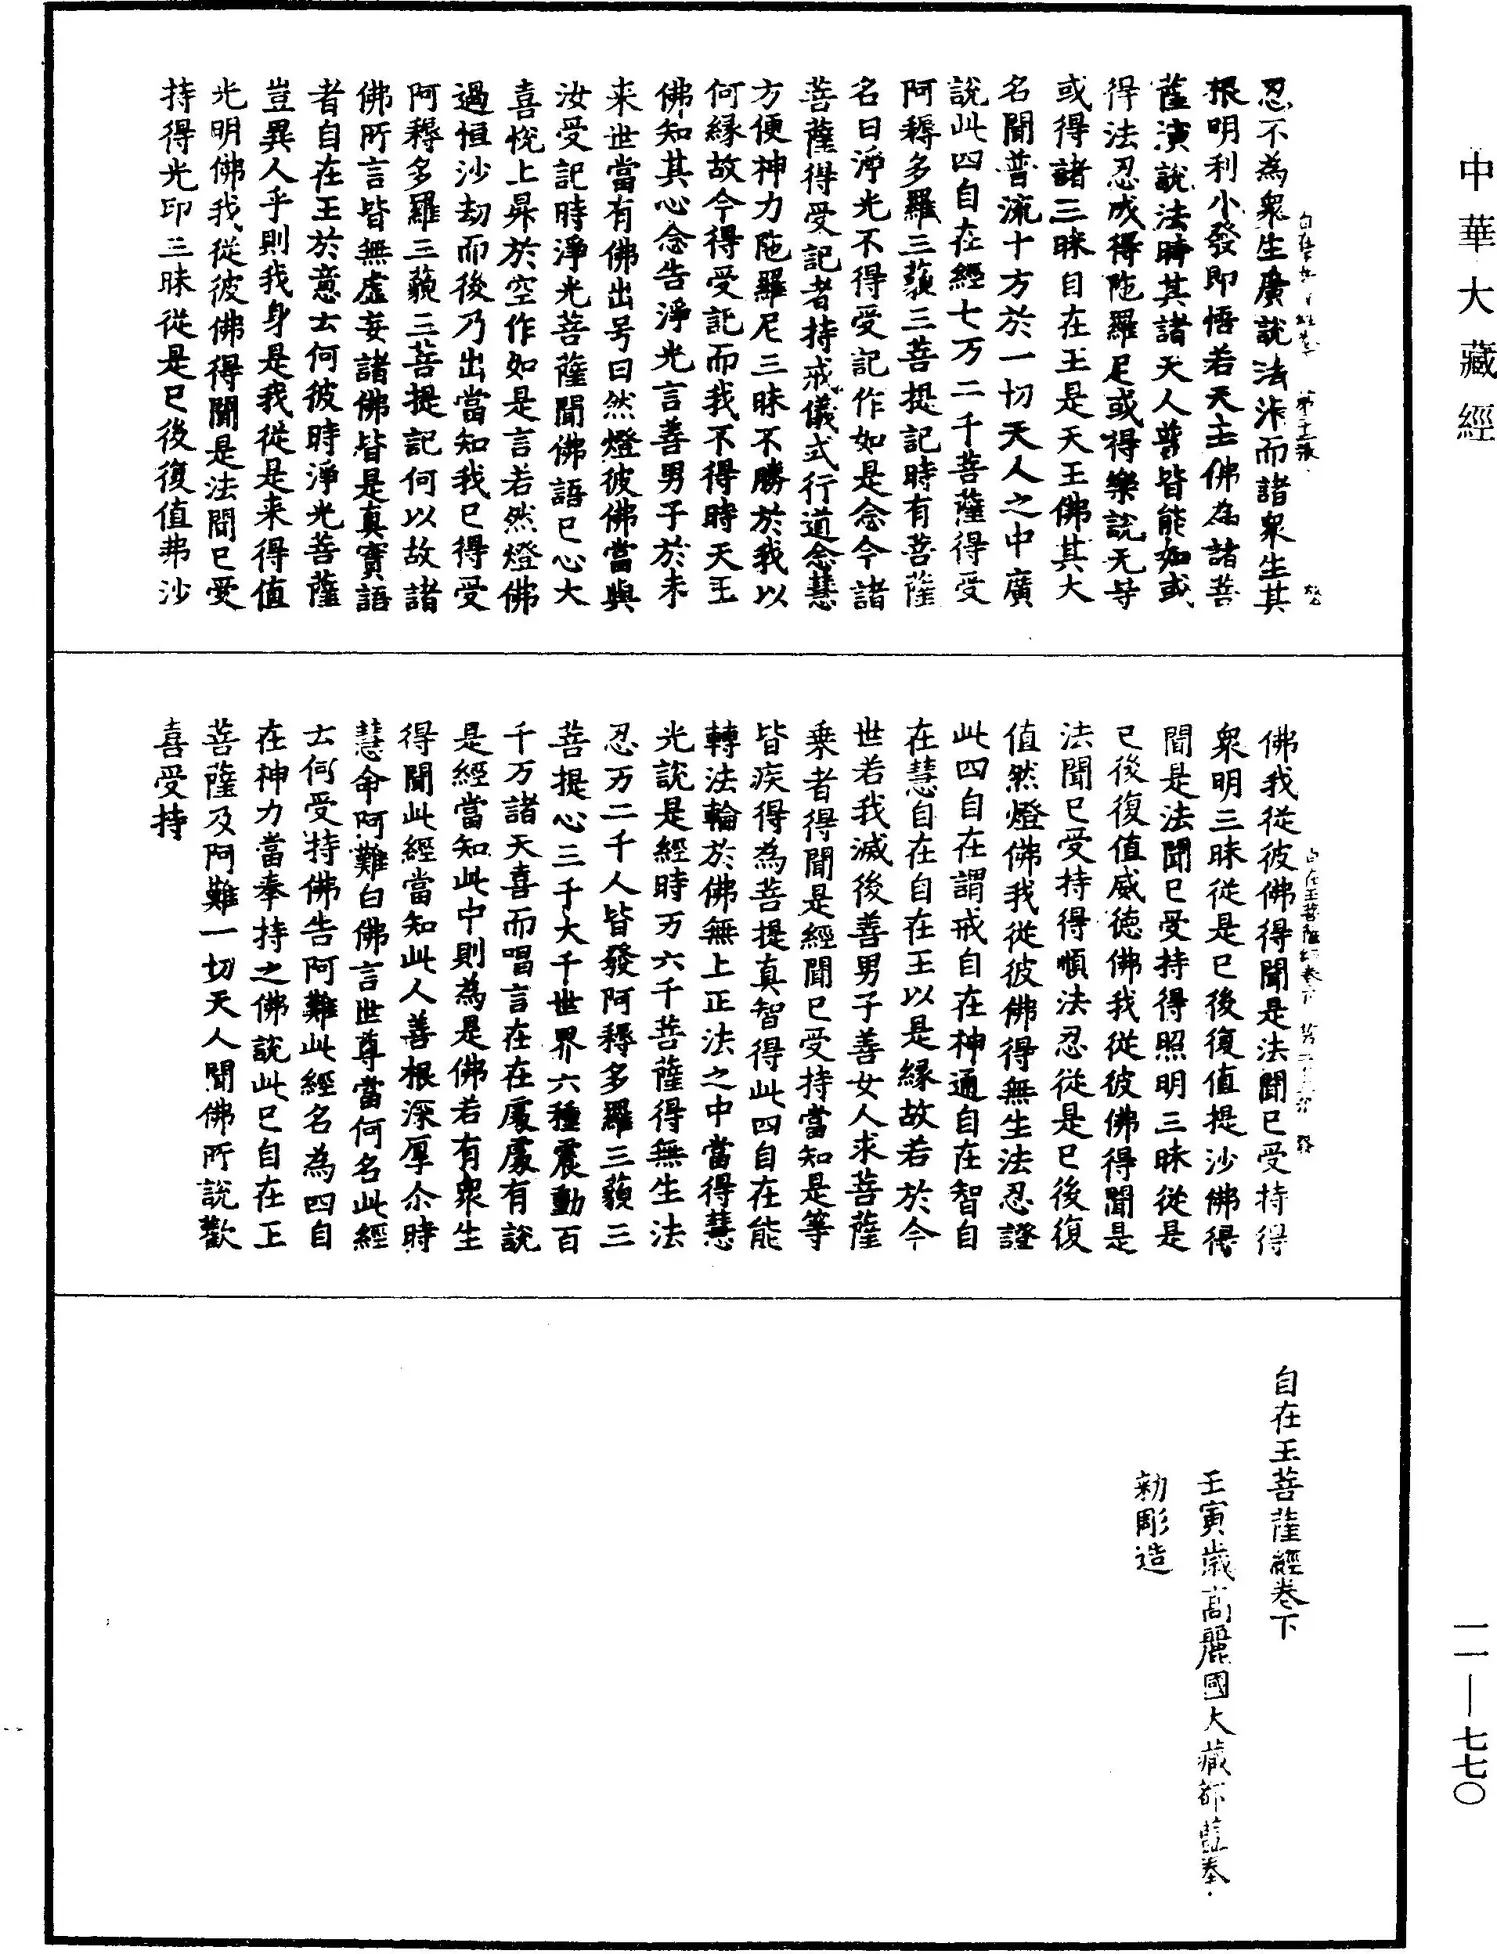 中華大藏經
忍不為衆生廣說法㳒而諸衆生其
根明利小發即悟若天主佛為諸菩
薩演說法時其諸天人普皆能如或
得法忍成得陁羅尼或得樂說无㝵
或得諸三昧自在王是天王佛其大
名聞普流十方於一切天人之中廣
說此四自在經七万二千菩薩得受
阿耨多羅三藐三菩提記時有菩薩
名曰淨光不得受記作如是念今諸
菩薩得受記者持戒儀式行道念慧
方便神力陁羅尼三昧不勝於我以
何緣故今得受記而我不得時天王
佛知其心念告淨光言善男子於未
来世當有佛出号曰然燈彼佛當與
汝受記時淨光菩薩聞佛語已心大
喜悅上昇於空作如是言若然燈佛
過恒沙劫而後乃出當知我已得受
阿耨多羅三藐三菩提記何以故諸
佛所言皆無虛妄諸佛皆是真實語
者自在王於意云何彼時淨光菩薩
豈異人乎則我身是我從是来得值
光明佛我從彼佛得聞是法聞已受
持得光印三昧從是已後復值弗沙
佛我從彼佛得聞是法聞已受持得
衆明三昧從是已後復值提沙佛得
聞是法聞已受持得照明三昧從是
已後復值威德佛我從彼佛得聞是
法聞已受持得順法忍從是已後復
值然燈佛我從彼佛得無生法忍證
此四自在謂戒自在神通自在智自
在慧自在自在王以是緣故若於今
世若我滅後善男子善女人求菩薩
乗者得聞是經聞已受持當知是等
皆疾得為菩提真智得此四自在能
轉法輪於佛無上正法之中當得慧
光說是經時万六千菩薩得無生法
忍万二千人皆發阿耨多羅三藐三
菩提心三千大千世界六種震動百
千万諸天喜而唱言在在處處有說
是經當知此中則為是佛若有衆生
得聞此經當知此人善根深厚尒時
慧命阿難白佛言世尊當何名此經
云何受持佛告阿難此經名為四自
在神力當奉持之佛說此已自在王
菩薩及阿難一切天人聞佛所說歡
喜受持
自在王菩薩經卷下
壬寅歲高麗國大藏都監奉
勑彫造
一一—七七〇